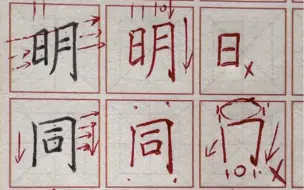 明 明 日
同 同 冂